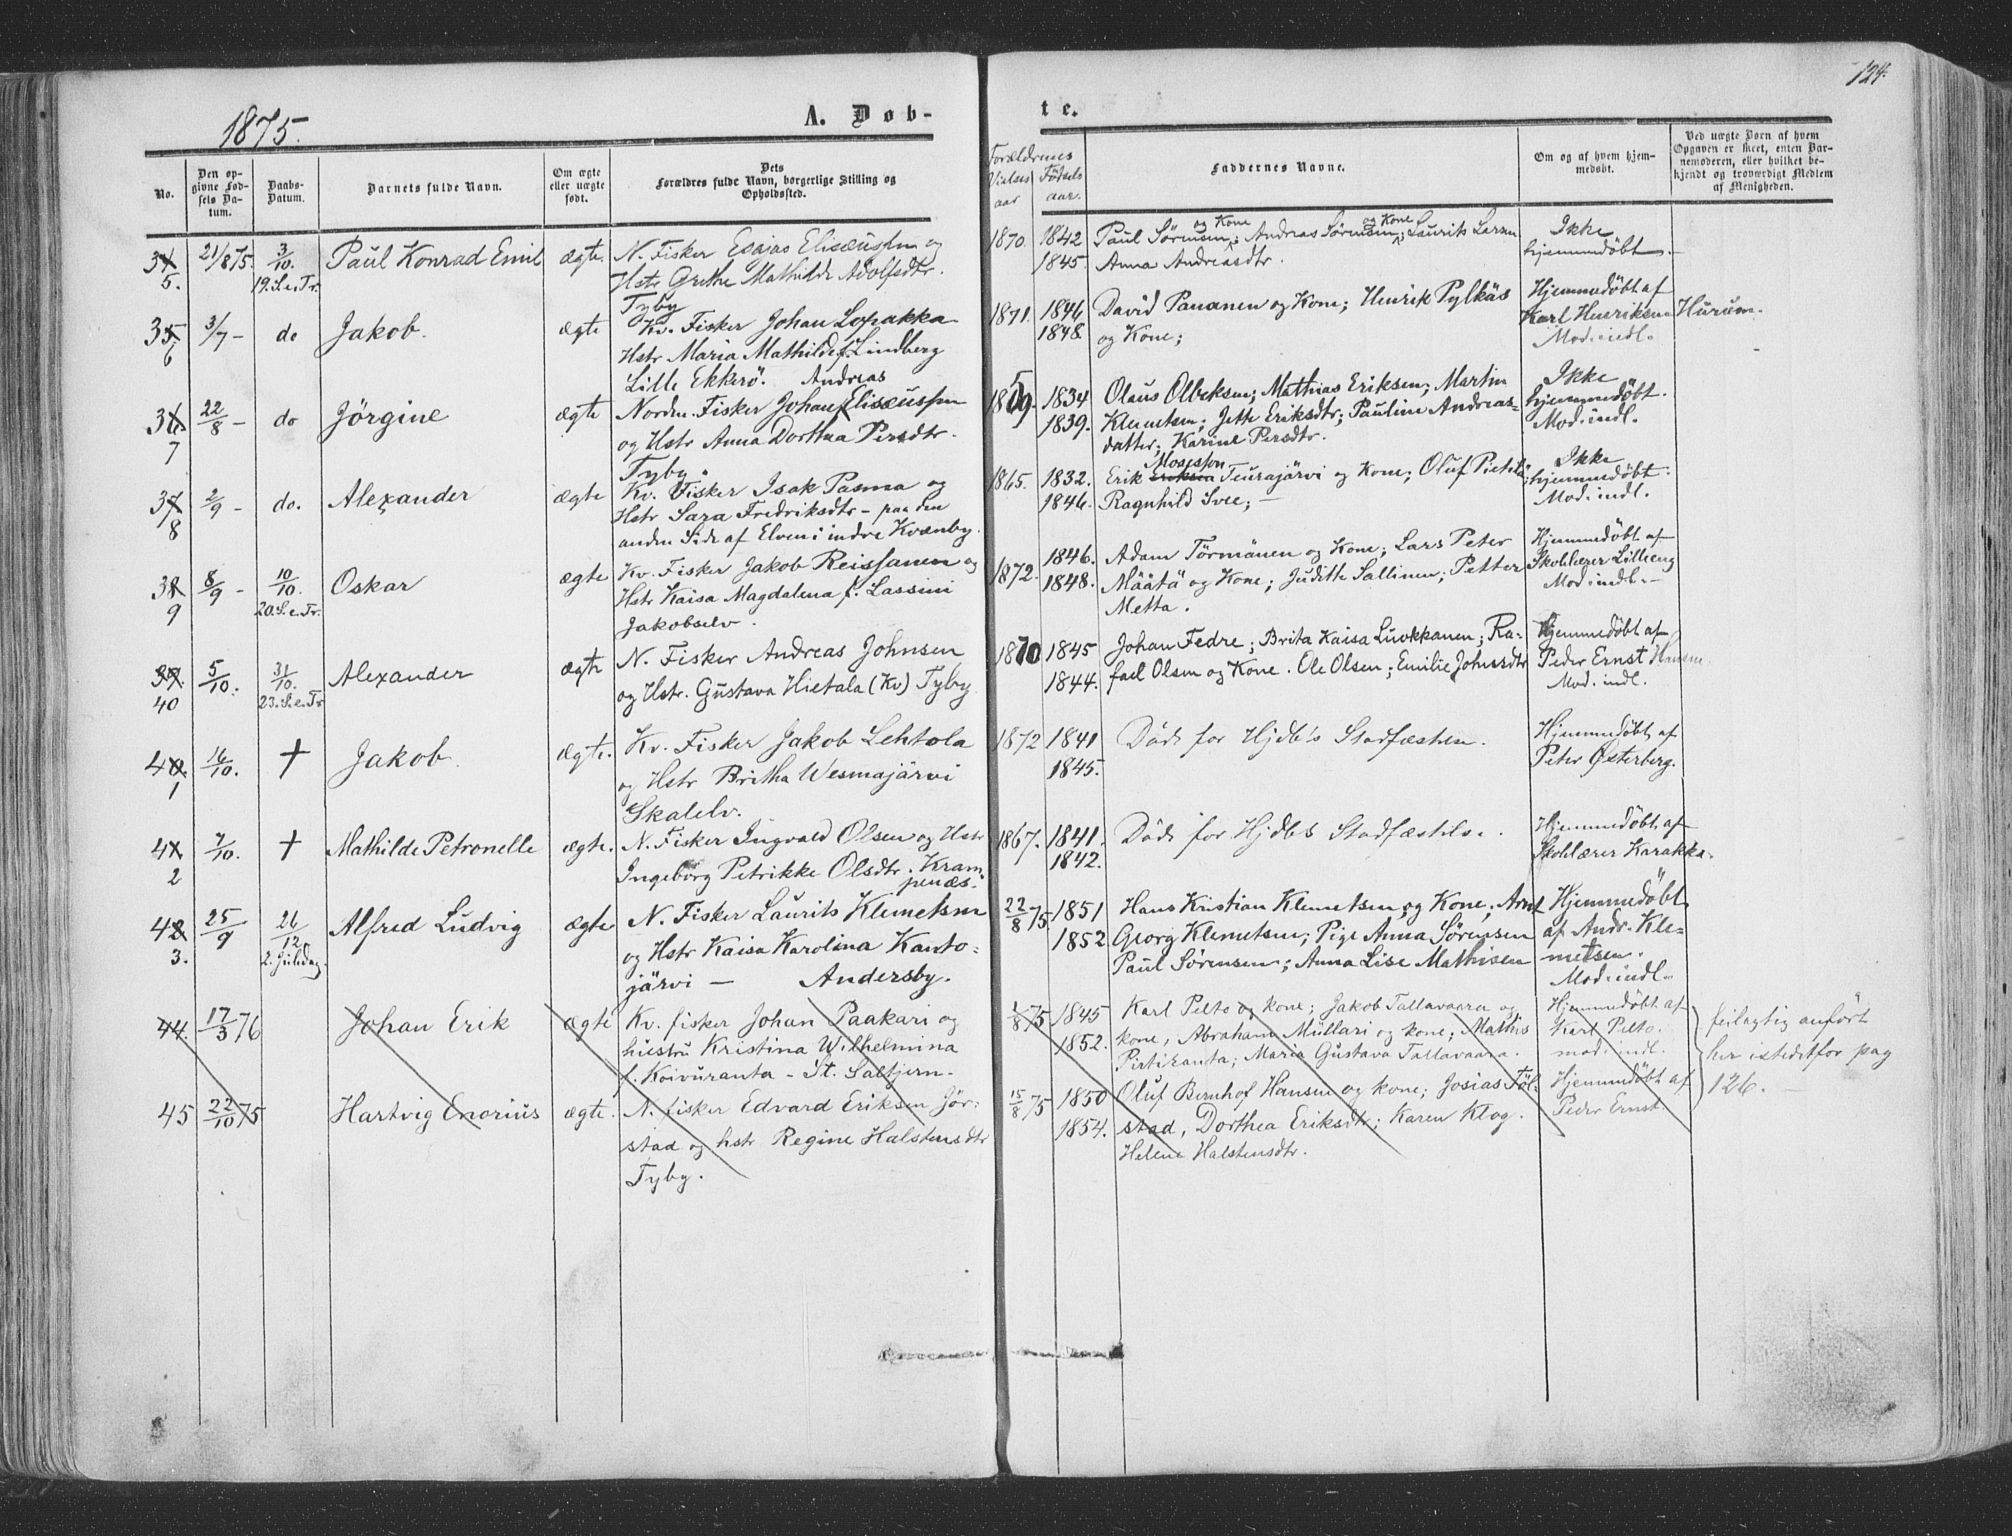 1875.
A. Døb-
No.
Den op-
givne Fød-
sels Da-
tum.
Daabs-
Datum.
Barnets fulde Navn.
Om ægte
eller uægte
født.
Dets
Forældres fulde Navn, borgerlige Stilling og
Opholdssted.
34 21/8 75. 3/10. Paul Konrad Emil ægte. N. Fisker Esajas Elisæussen og
5. 19.S.e.Tr. Hstr Grethe Mathilde Adolfsdtr.
Tyby
35 3/7 - do Jakob. ægte Kv. Fisker Johan Lopakka
6 Hstr Maria Mathilde f. Lindberg
Lille Ekkerö. Andreas
36 22/8 - do Jörgine ægte Norden. Fisker Johan Elisæussen
7 og Hstr Anna Dorthea Persdtr.
Tyby.
37 2/9 - do. Alexander ægte Kv. Fisker Isak Pasma og
8 Hstr Sara Fredriksdtr - paa den
anden Side af Elven i indre Kvænby.
38 8/9 - 10/10. Oskar ægte Kv. Fisker Jakob Reissanen og
9 20.S.e.Tr. Hstr Kaisa Magdalena f. Lassini
Jakobselv.
39. 5/10. 31/10. Alexander ægte N. Fisker Andreas Johnsen
40 23.S.e.Tr og Hstr. Gustava Hietala (Kv) Tyby.
40. 16/10. † Jakob. ægte. Kv. Fisker Jakob Lehtola
1 og Hstr Britha Wesmajärvi
Skalelv.
41 7/10. † Mathilde Petronelle ægte. N. Fisker Ingvald Olsen og Hstr
2 Ingeborg Petrikke Olsdtr. Kram-
penæs.
42 25/9 26/12 Alfred Ludvig ægte N. Fisker Laurits Klemetsen
3. 2. Juledag. og Hstr Kaisa Karolina Kanto-
järvi - Andersby.
44. 17/3 76 Johan Erik ægte Kv. fisker Johan Paakari og
hustru Kristina Wilhelmina
f. Koivuranta - St. Saltjern.
45 22/10 75 Hartvig Enorius ægte. N. fisker Edvard Eriksen Jör-
stad og hstr Regine Halstensdtr
Tyby.
124.
te.
Forældrenes
Vielses Fødsels
aar aar.
Faddernes Navne.
Om og af hvem hjem-
medøbt.
Ved uægte Børn af hvem
Opgaven er skeet, enten Bar-
nemoderen, eller hvilket be-
kjendt og troværdigt Medlem
af Menigheden.
1870. 1842 Paul Sörensen og Kone; Andreas Sörensen og Kone; Laurits Larsen Ikke
1845. Anna Andreasdtr. hjemmedöbt.
1871. 1846 David Pananen og Kone; Henrik Pylkäs Hjemmedöbt af
1848 og Kone; Karl Henriksen Hurum.
Mod. indl.
1859. 1834 Olaus Olbeksen; Mathias Eriksen; Martin Ikke
1839. Klemetsen; Jette Eriksdtr; Pauline Andreas- hjemmedöbt.
datter; Karine Persdtr. Mod. indl.
Mosesson
1865. 1832. Erik Eriksen Teurajärvi og Kone; Oluf Pietilä Ikke
1846. Ragnhild Svee; - hjemmedöbt.
Mod. indl.
1872. 1846. Adam Törmänen og Kone; Lars Peter Hjemmedöbt af
1848. Määtä og Kone; Judithe Sallinen; Petter Skolelærer Lillieng
Metta. Mod. indl.-
1870 1845 Johan Fedre; Brita Kaisa Luokkanen; Ra- Hjemmedöbt af
1844. fael Olsen og Kone. Ole Olsen; Emilie Johnsdtr Peder Ernst Hansen.
Mod. indl.
1872 1841 Död för Hjdb's Stadfæstelse. Hjemmedöbt af
1845. Peter Østerberg.
1867. 1841. Död för Hjdb's Stadfæstelse. Hjemmedöbt af
1842. Skolelærer Karakka.
22/8 75 1851 Hans Kristian Klemetsen og Kone; Arnt Hjemmedöbt
1852 Georg Klemetsen; Pige Anna Sörensen af Andr. Kle-
Paul Sörensen; Anna Lise Mathisen metsen.
Mod. indl.
1/8 75 1845 Karl Pelto og kone; Jakob Tallavaara og Hjemmedöbt af
1852. kone, Abraham Mullari og kone; Mathis Karl Pelto.
Pirtiranta; Maria Gustava Tallavaara. mod. indl.
feilagtig anfört
her istedetfor pag
126.
15/8 75 1850 Oluf Bernhof Hansen og kone; Josias Föl- Hjemmedöbt af
1854. stad, Dorthea Eriksdtr; Karen Klog. Peder Ernst
Helene Halstensdtr.